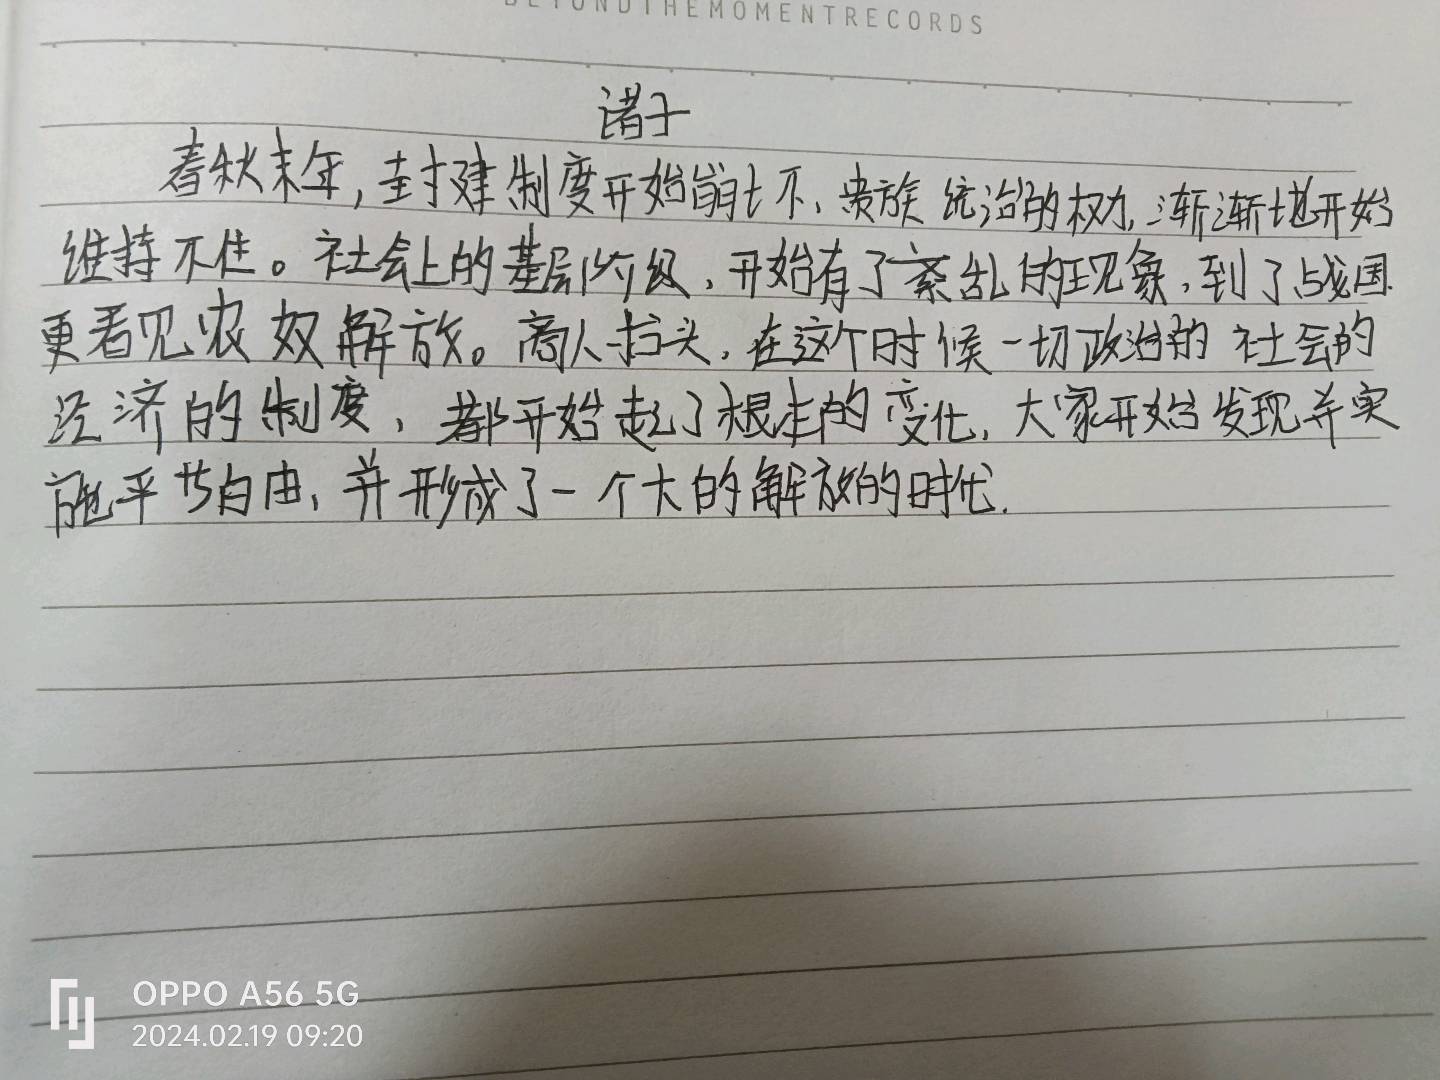 BEYONDTHEMOMENTRECORDS
诸子
春秋末年,封建制度开始崩坏、贵族统治的权力,渐渐地开始
维持不住。社会上的基层阶级,开始有了紊乱的现象,到了战国
更看见农奴解放。商人抬头,在这个时候一切政治的社会的
经济的制度,都开始起了根本的变化,大家开始发现并实
施平等自由,并形成了一个大的解放的时代.
OPPO A56 5G
2024.02.19 09:20